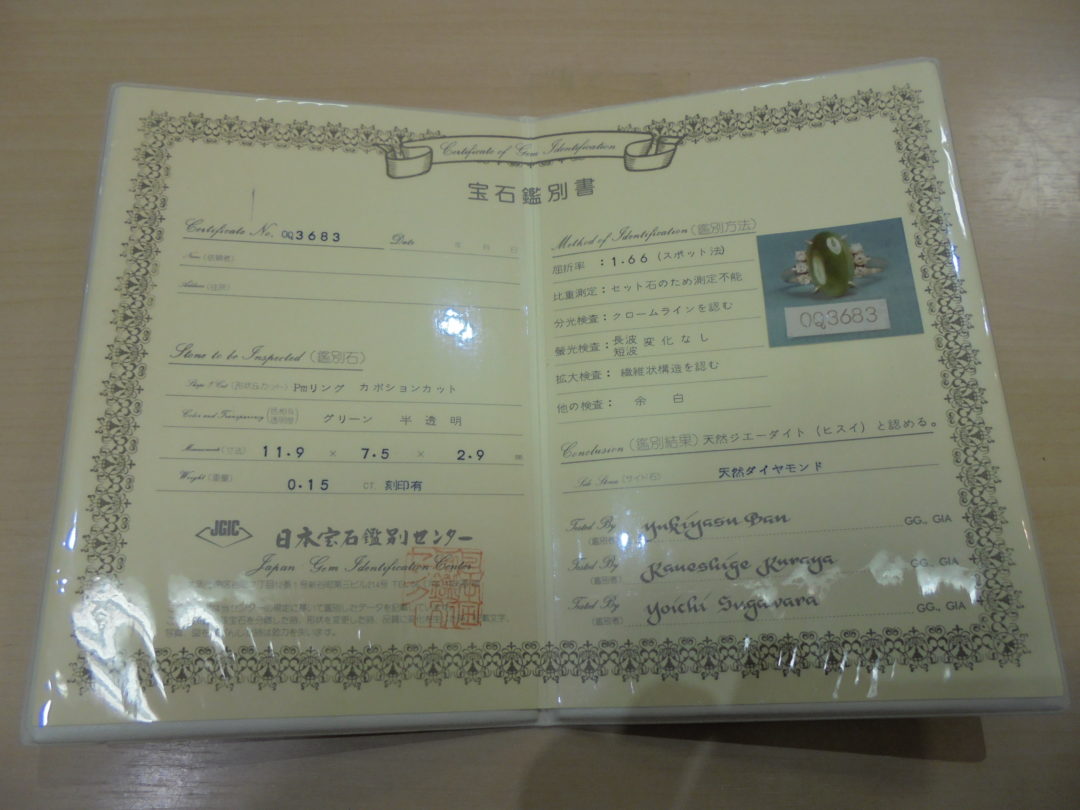 Certificate of Gem Identification
宝石鑑別書
Certificate No. OQ3683 Date 年 月 日
Name (依頼者)
Address (住所)
Stone to be Inspected (鑑別石)
Shape & Cut (形状&カット) Pmリング カボションカット
Color and Transparency (色相&透明度) グリーン 半透明
Measurement (寸法) 11.9 × 7.5 × 2.9 ㎜
Weight (重量) 0.15 CT. 刻印有
JGIC 日本宝石鑑別センター
Japan Gem Identification Center
Method of Identification (鑑別方法)
屈折率 : 1.66 (スポット法)
比重測定 : セット石のため測定不能
分光検査 : クロームラインを認む
螢光検査 : 長波 短波 変化なし
拡大検査 : 繊維状構造を認む
他の検査 : 余白
OQ3683
Conclusion (鑑別結果) 天然ジエーダイト (ヒスイ) と認める。
Side Stone (サイド石) 天然ダイヤモンド
Tested By (鑑別者) Yukiyasu Ban GG., GIA
Tested By (鑑別者) Kaneshige Kuraya GG., GIA
Tested By (鑑別者) Yoichi Sugawara GG., GIA